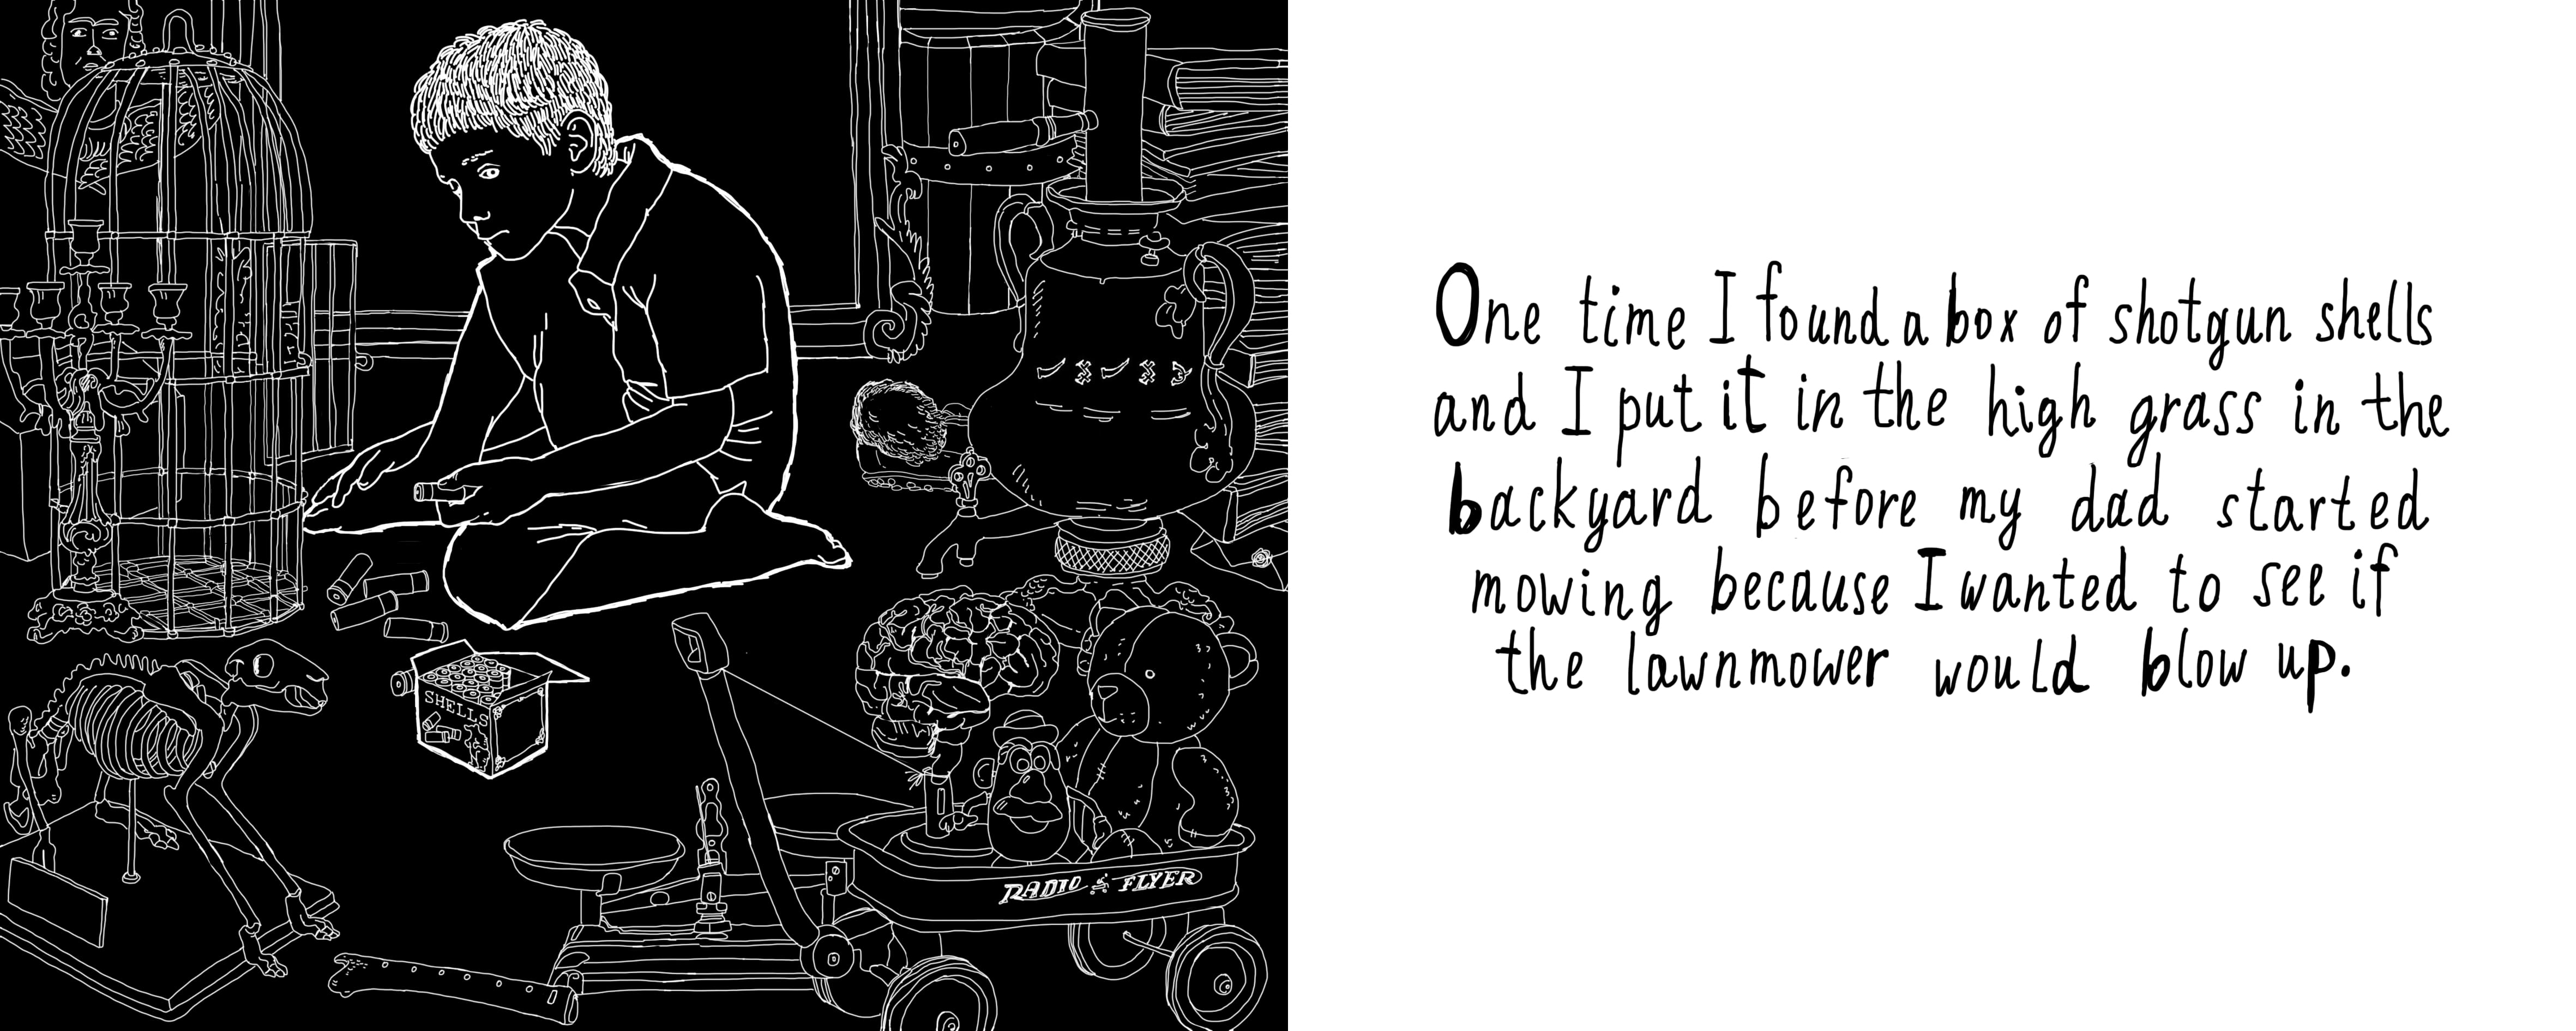 SHELLS
RADIO FLYER
One time I found a box of shotgun shells
and I put it in the high grass in the
backyard before my dad started
mowing because I wanted to see if
the lawnmower would blow up.